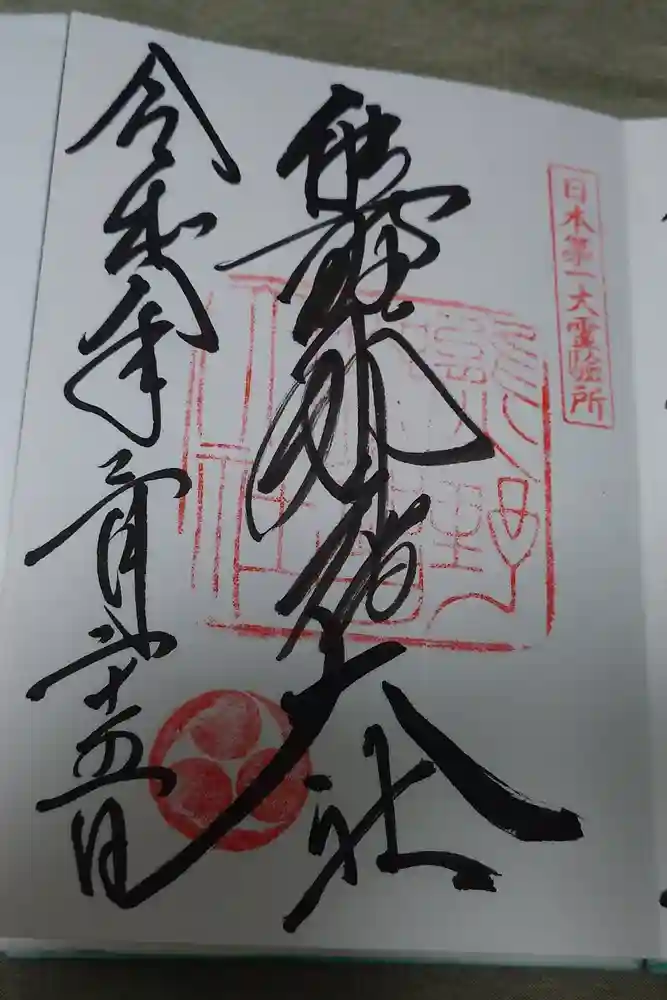 日本第一大霊験所
熊野那智大社
令和年月弐十五日